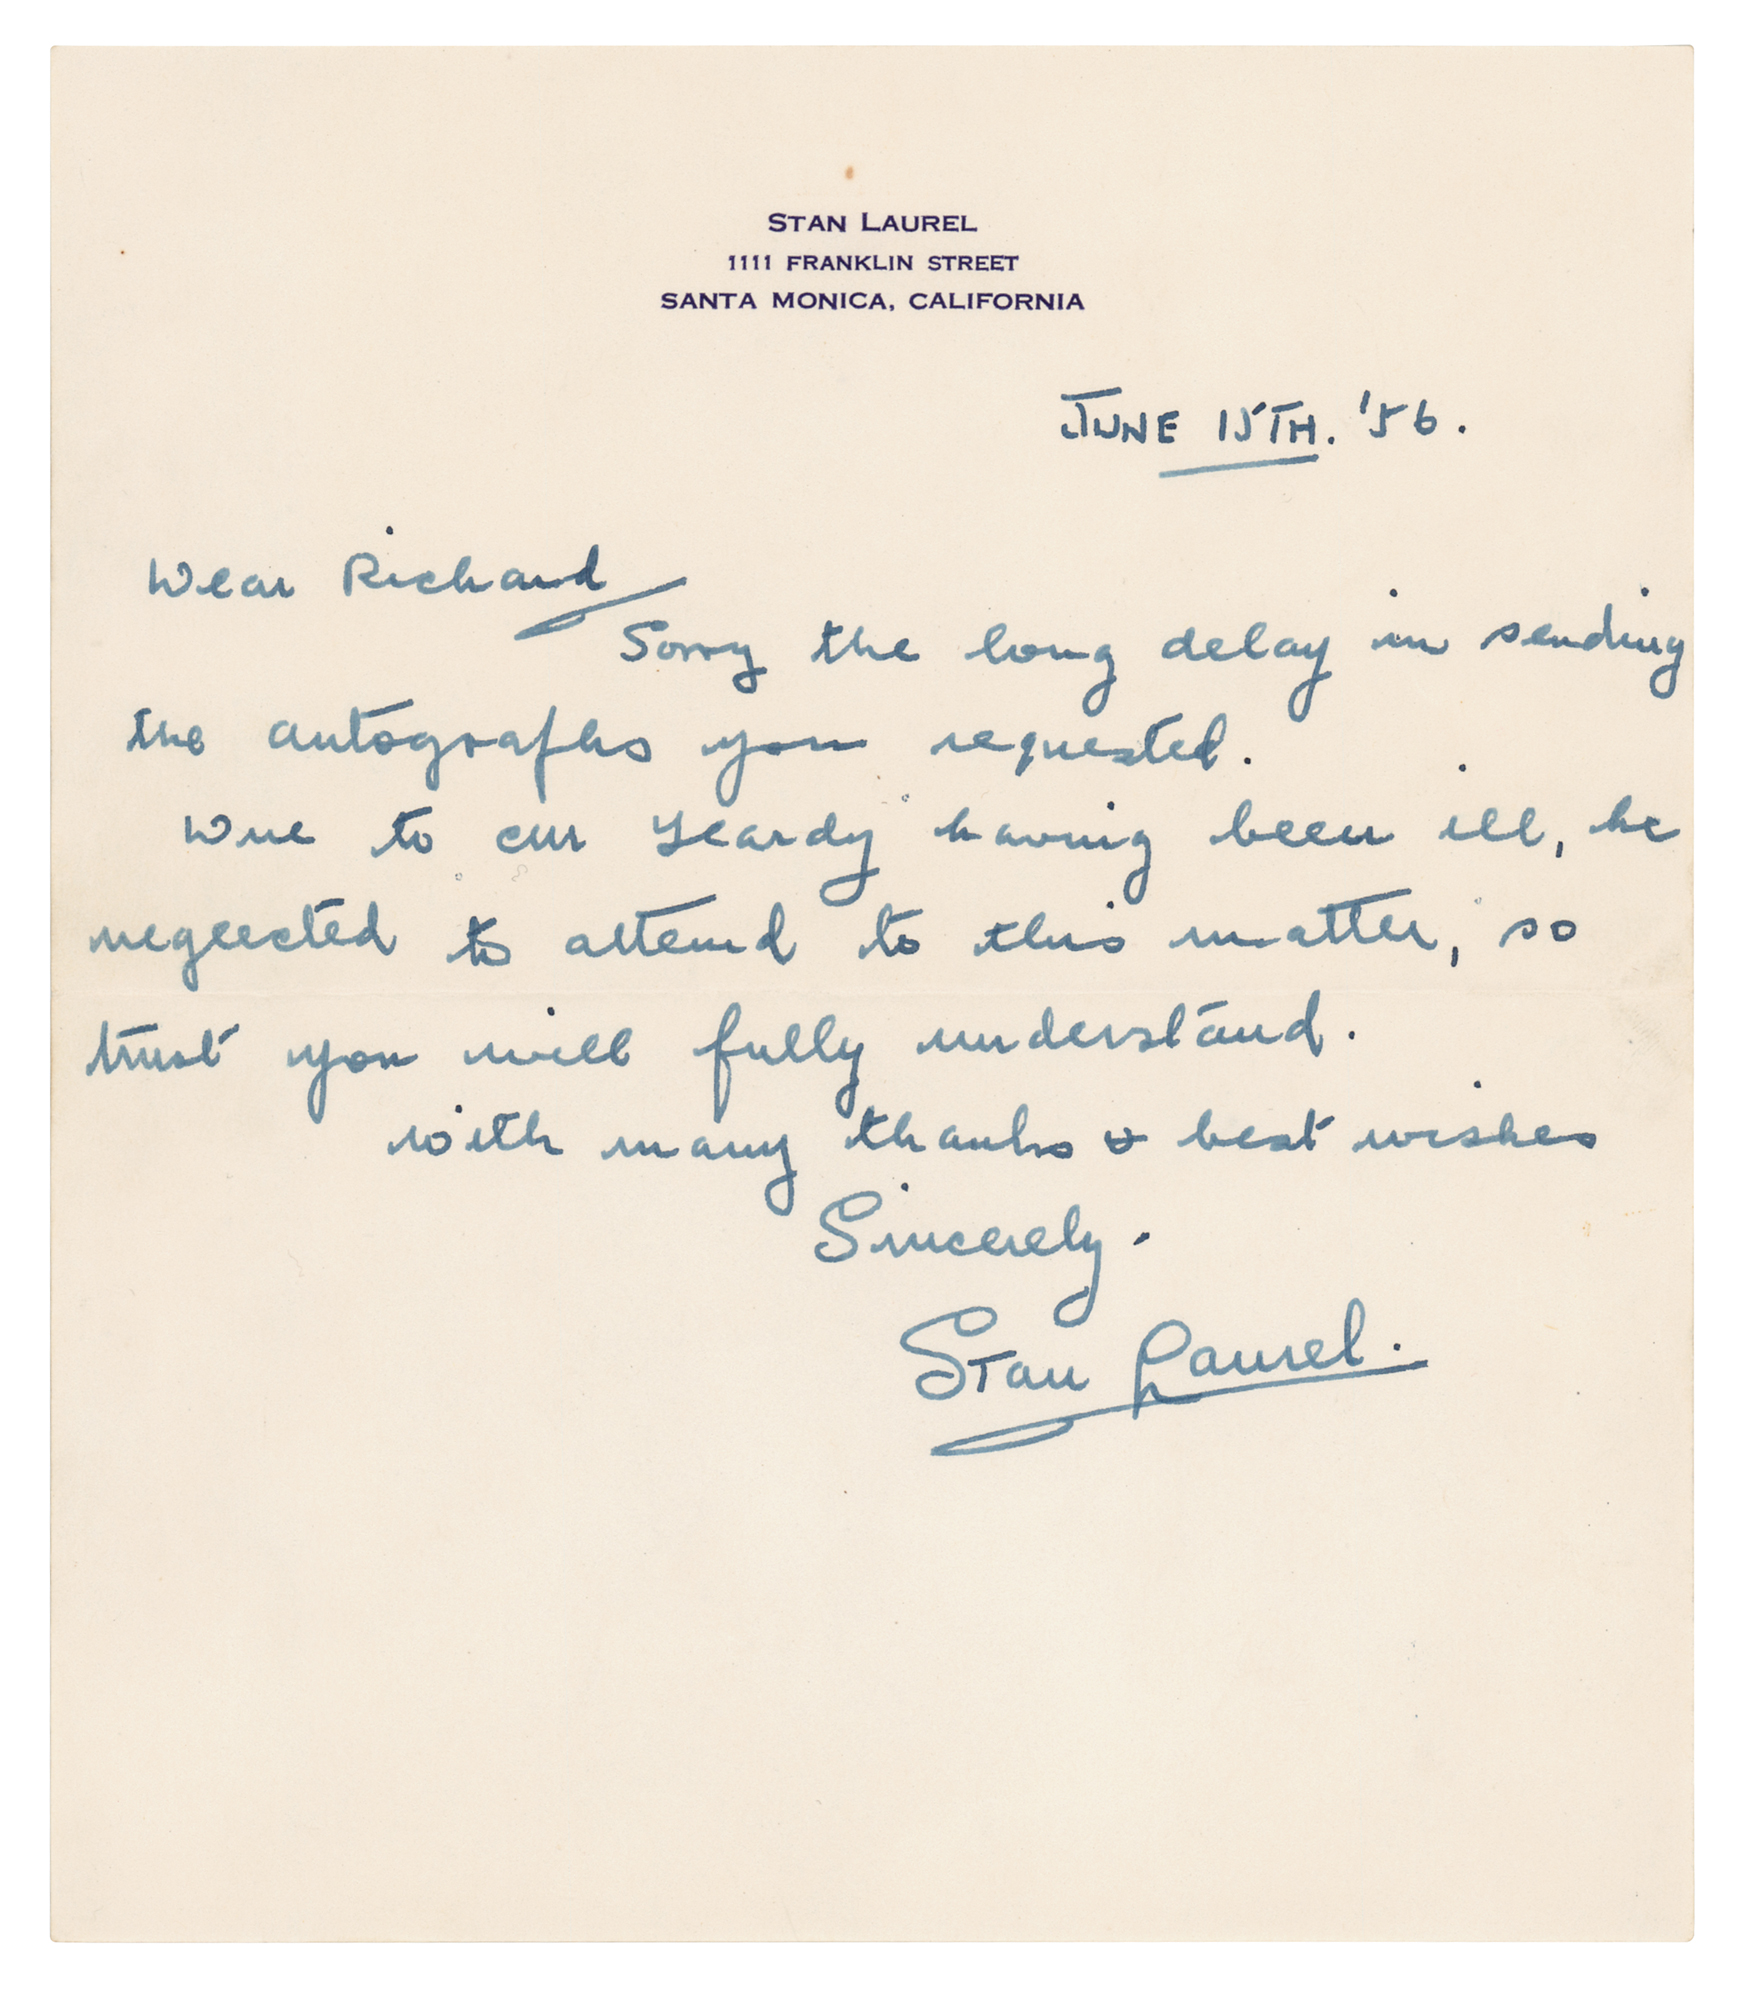 STAN LAUREL
1111 FRANKLIN STREET
SANTA MONICA, CALIFORNIA
JUNE 15TH. '56.
Dear Richard
Sorry the long delay in sending
the autographs you requested.
Due to Mr Hardy having been ill, he
neglected to attend to this matter, so
trust you will fully understand.
with many thanks & best wishes
Sincerely.
Stan Laurel.